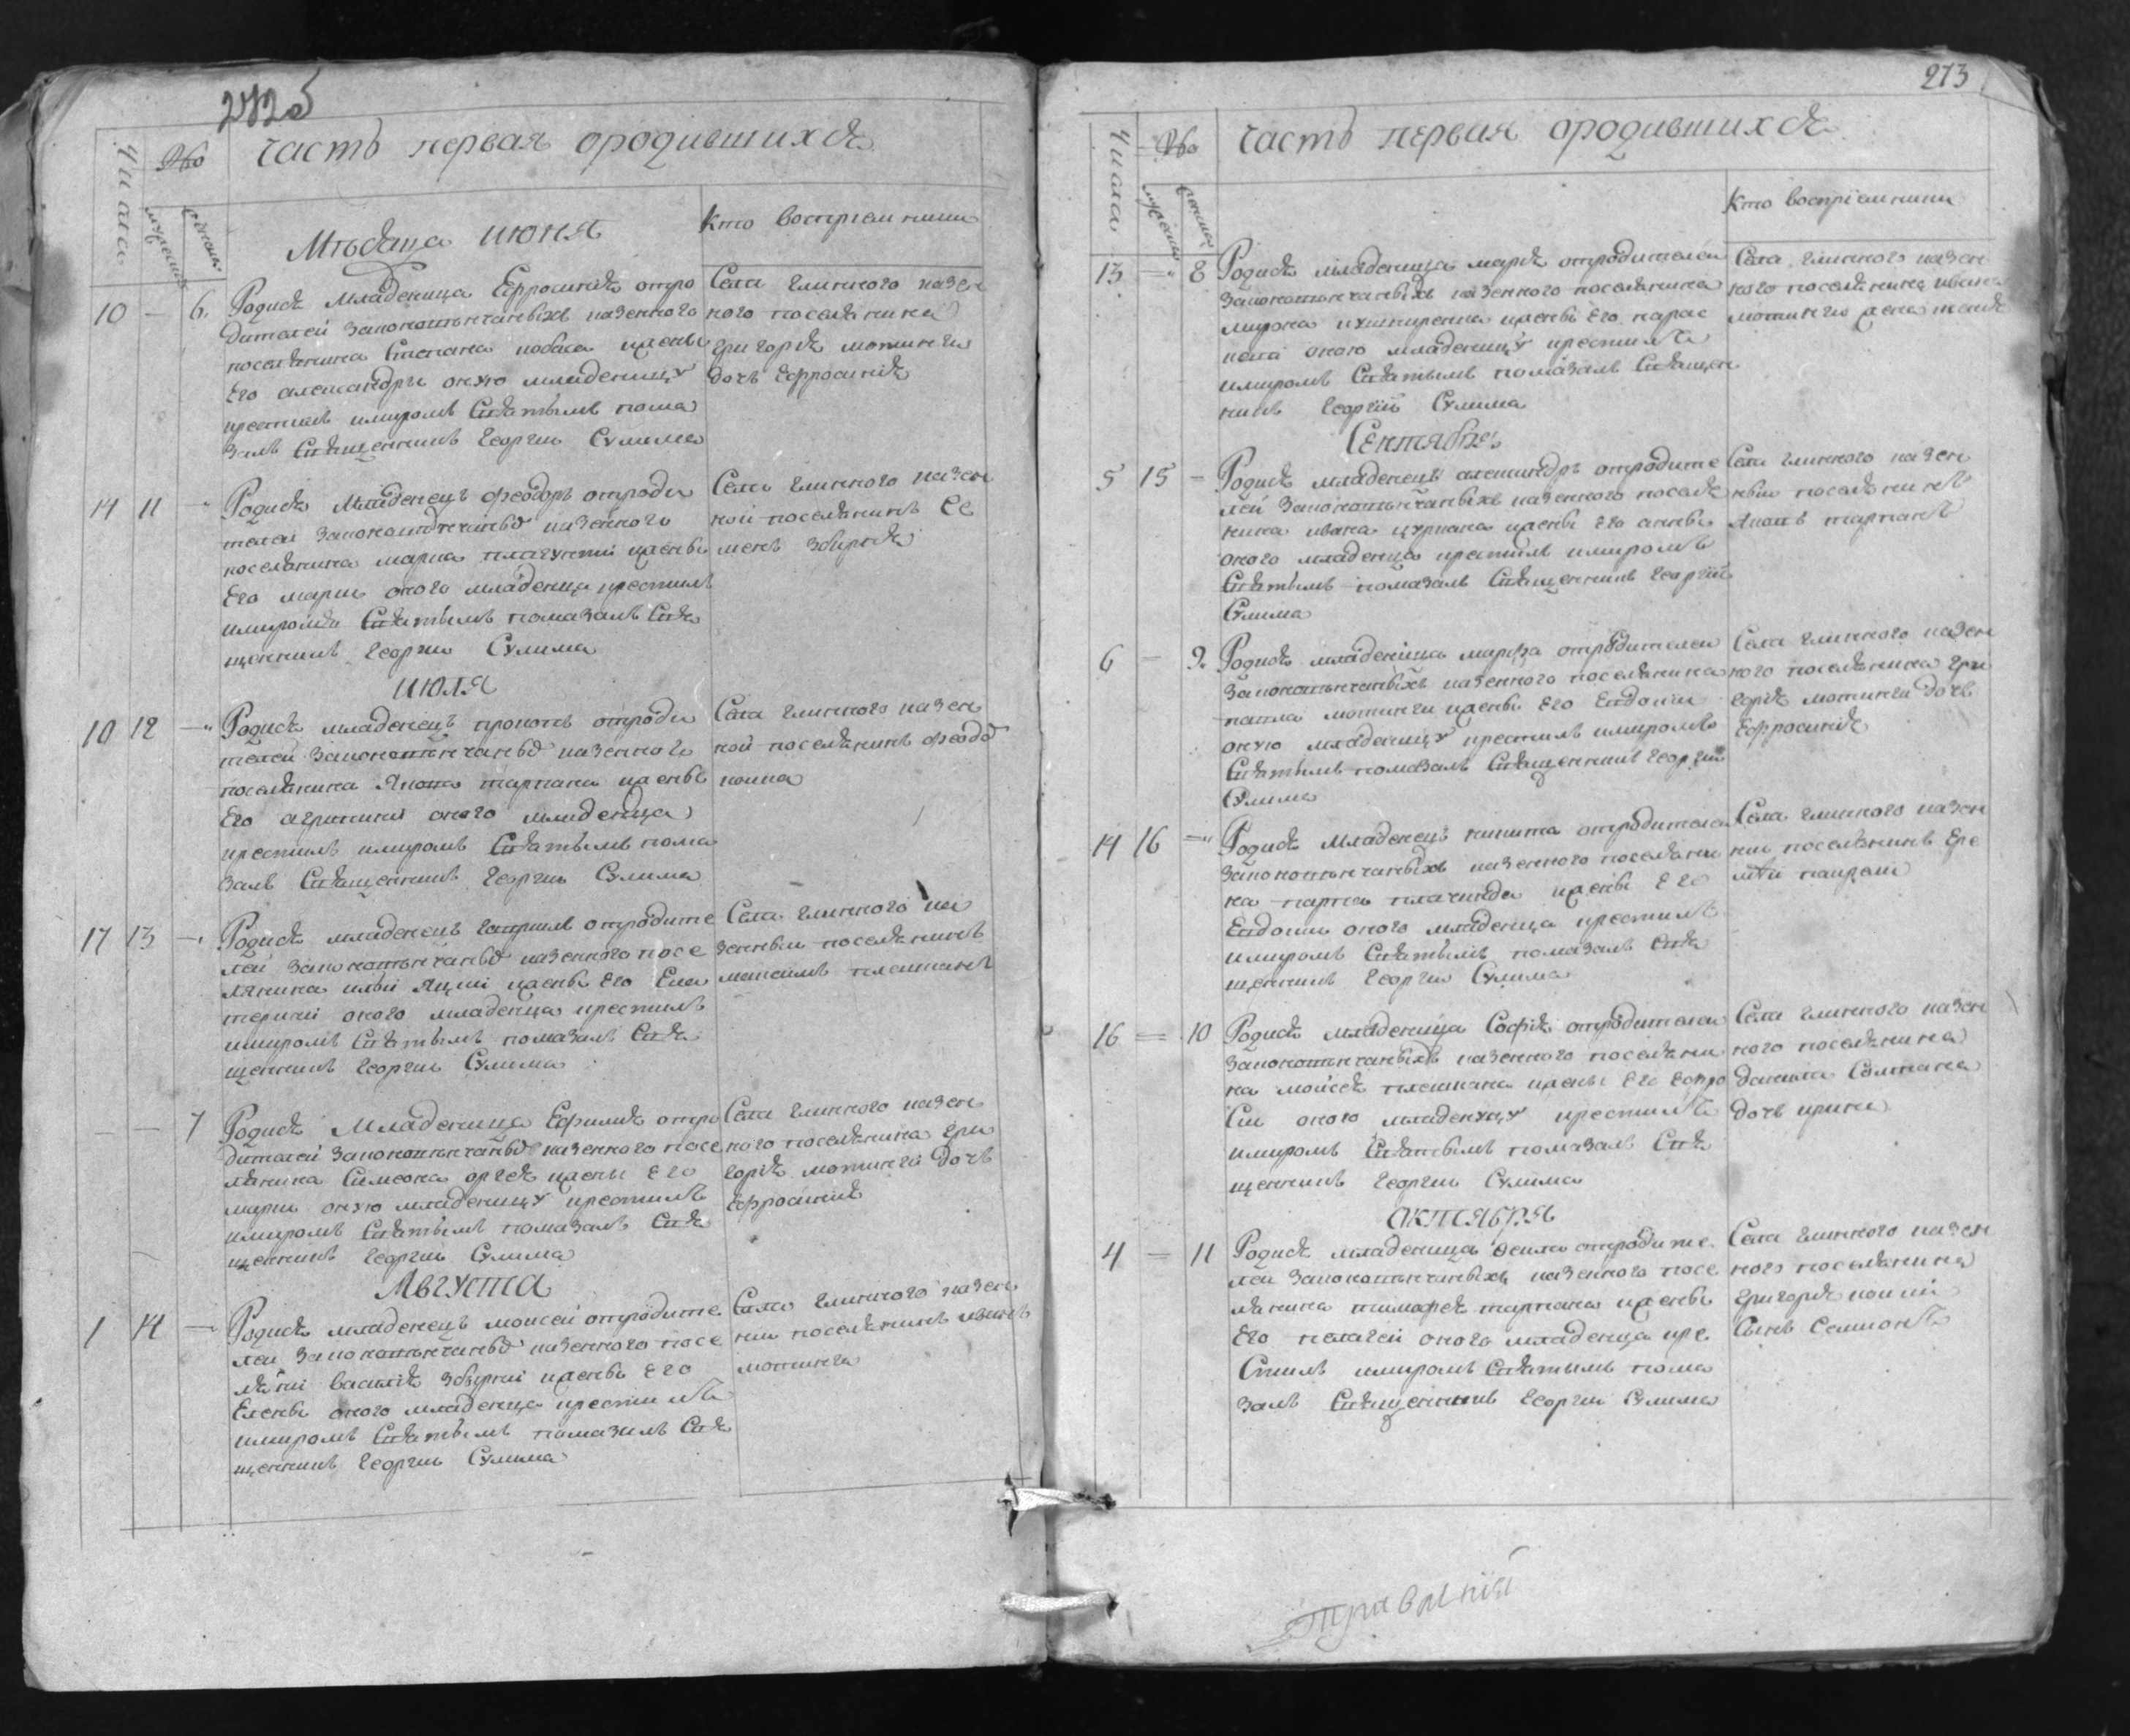 272 об
часть первая ородившихся
Числа
Мѣсяца июня
Кто восприемники
10 — 6 Родися младеница Ефросиния отро
дителей законовѣнчаныхъ казенного
поселянина Степана жены
Его александры оную младеницу
крестилъ имиромъ Святымъ пома
залъ Священникъ Георгий Сулима
Села глинного казен
ного поселянина
григория мотинги
дочь Ефросиния
14 11 — Родися Младенецъ феодоръ отроди
телей законовѣнчаныхъ казенного
поселянина марка жены
Его марии оного младенца крестилъ
имиромъ Святымъ помазалъ Свя
щенникъ Георгий Сулима
Села глинного казен
ной поселянинъ Се
менъ збирня
июля
10 12 — Родися младенецъ прокопъ отроди
телей законовѣнчаныхъ казенного
поселянина Якова тарпана жены
Его агрипини оного младенца
крестилъ имиромъ Святымъ пома
залъ Священникъ Георгий Сулима
Села глинного казен
ной поселянинъ феодо
17 13 — Родися младенецъ гавриилъ отродите
лей законовѣнчаныхъ казенного посе
лянина илии жены Его Ека
терини оного младенца крестилъ
имиромъ Святымъ помазалъ Свя
щенникъ Георгий Сулима
Села глинного ка
зенный поселянинъ
максимъ плешканъ
— — 7 Родися Младеница Ефимия отро
дителей законовѣнчаныхъ казенного посе
лянина Симеона жены Его
марии оную младеницу крестилъ
имиромъ Святымъ помазалъ Свя
щенникъ Георгий Сулима
Села глинного казен
ного поселянина гри
гория мотинги дочь
Ефросиния
Августа
1 14 — Родися младенецъ моисей отродите
лей законовѣнчаныхъ казенного посе
василия збирни жены Его
Елены оного младенца крестилъ
имиромъ Святымъ помазалъ Свя
щенникъ Георгий Сулима
Села глинного казен
ний поселянинъ иванъ
мотинга
273
часть первая ородившихся
Числа
Кто восприемники
13 — 8 Родися младеница мария отродителей
законовѣнчаныхъ казенного поселянина
мирона жены Его парас
оную младеницу крестилъ
имиромъ Святымъ помазалъ Священ
никъ Георгий Сулима
Села глинного казен
ного поселянина ивана
мотинги жена
Сентября
5 15 — Родися младенецъ александръ отродите
лей законовѣнчаныхъ казенного поселя
нина ивана цуркана жены Его анны
оного младенца крестилъ имиромъ
Святымъ помазалъ Священникъ Георгий
Сулима
Села глинного казен
ный поселянинъ
Яковъ тарпанъ
6 — 9 Родися младеница марфа отродителей
законовѣнчаныхъ казенного поселянина
павла мотинги жены Его Евдокии
оную младеницу крестилъ имиромъ
Святымъ помазалъ Священникъ Георгий
Сулима
Села глинного казен
ного поселянина гри
гория мотинги дочь
Ефросиния
14 16 — Родися Младенецъ никита отродителей
законовѣнчаныхъ казенного поселяни
на жены Его
Евдокии оного младенца крестилъ
имиромъ Святымъ помазалъ Свя
щенникъ Георгий Сулима
Села глинного казен
ний поселянинъ Ере
16 — 10 Родися младеница София отродителей
законовѣнчаныхъ казенного поселяни
на моисея плешкана жены Его Ефро
Сии оную младеницу крестилъ
имиромъ Святымъ помазалъ Свя
щенникъ Георгий Сулима
Села глинного казен
ного поселянина
данила Солтана
дочь ирина
октября
4 — 11 Родися младеница отродите
лей законовѣнчаныхъ казенного посе
лянина тимофея тарпана жены
Его пелагеи оного младенца кре
Стилъ имиромъ Святымъ пома
залъ Священникъ Георгий Сулима
Села глинного казен
ного поселянина
григория
Сынъ Семионъ